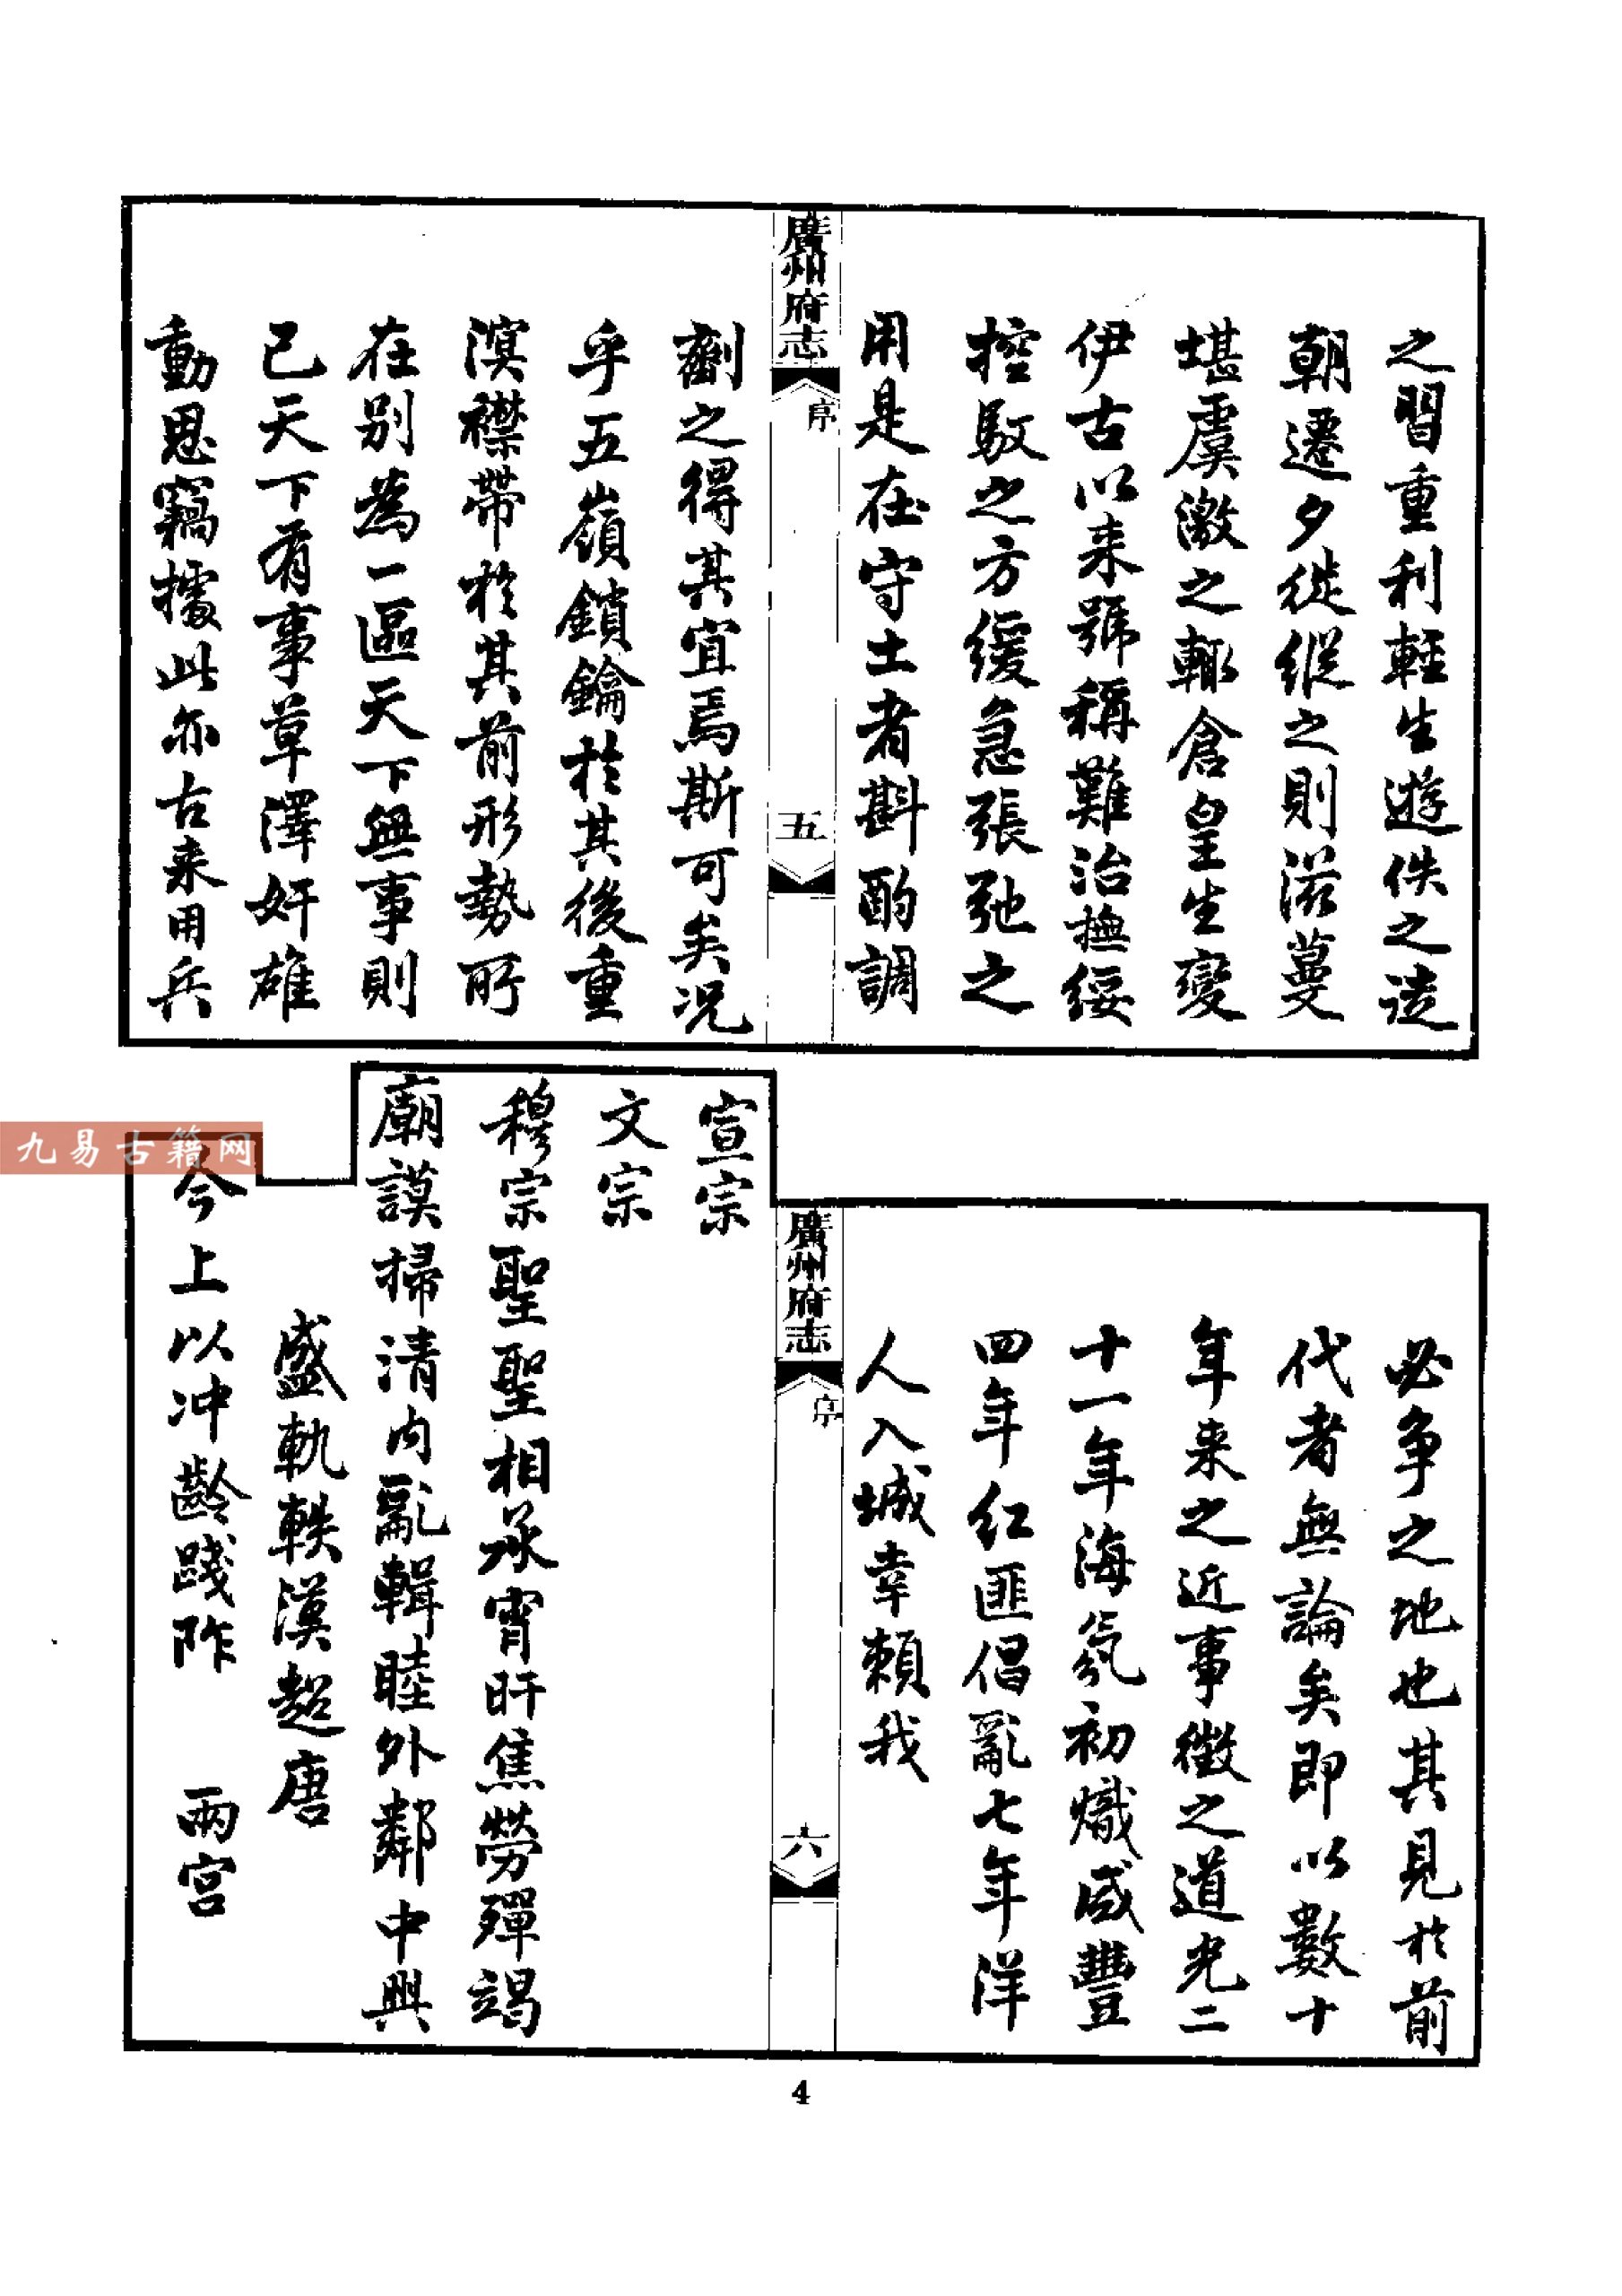 之習重利輕生遊佚之徒
朝遷夕徙縱之則滋蔓
堪虞激之輒倉皇生變
伊古以来號稱難治撫綏
控馭之方緩急張弛之
用是在守土者斟酌調
廣州府志
序
五
劑之得其宜焉斯可矣况
乎五嶺鎖鑰於其後重
溟襟帶於其前形勢所
在别為一區天下無事則
已天下有事草澤奸雄
動思竊據此亦古来用兵
必争之地也其見於前
代者無論矣即以數十
年来之近事徵之道光二
十一年海氛初熾咸豐
四年紅匪倡亂七年洋
人入城幸賴我
廣州府志
序
六
宣宗
文宗
穆宗聖聖相承宵旰焦勞殫竭
廟謨掃清内亂輯睦外鄰中興
盛軌軼漢超唐
今上以冲齡踐阼 兩宫
九易古籍网
4